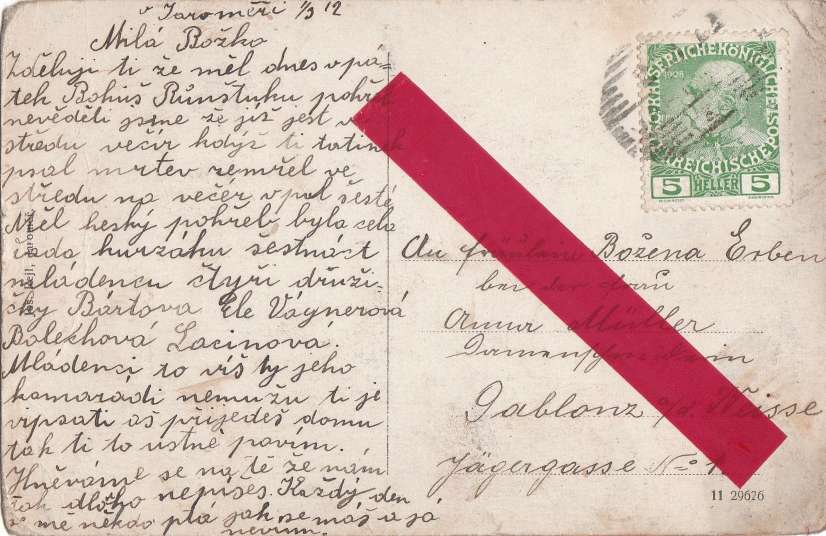 v Jaroměři 1/3 12
Milá Božko
Zděluji ti že měl dnes v pá-
tek Bohuš Růnštuku pohřeb
nevěděli jsme že již jest ve
středu večír kdýž ti tatínek
psal mrtev zemřel ve
středu na večér v pul šesté
Měl heský pohřeb byla cela
šestnáct
mládencu čtyři druži-
čky Bártova Ele Vágnerová
Bolechová Lacinová.
Mládenci to víš ty jeho
kamarádi nemužu ti je
vipsati aš přijedeš domu
tak ti to ustně povím.
Hněváme se na tě že nám
tak dloho nepíšeš. Každý den
se mě někdo ptá jak se máš a já
nevim.
K.K. OESTERREICHISCHE POST
1908
5 HELLER 5
An Fräulein Božena Erben
bei der Frau
Anna Müller
Gablonz a/d. Neisse
Jägergasse No 1
11 29626